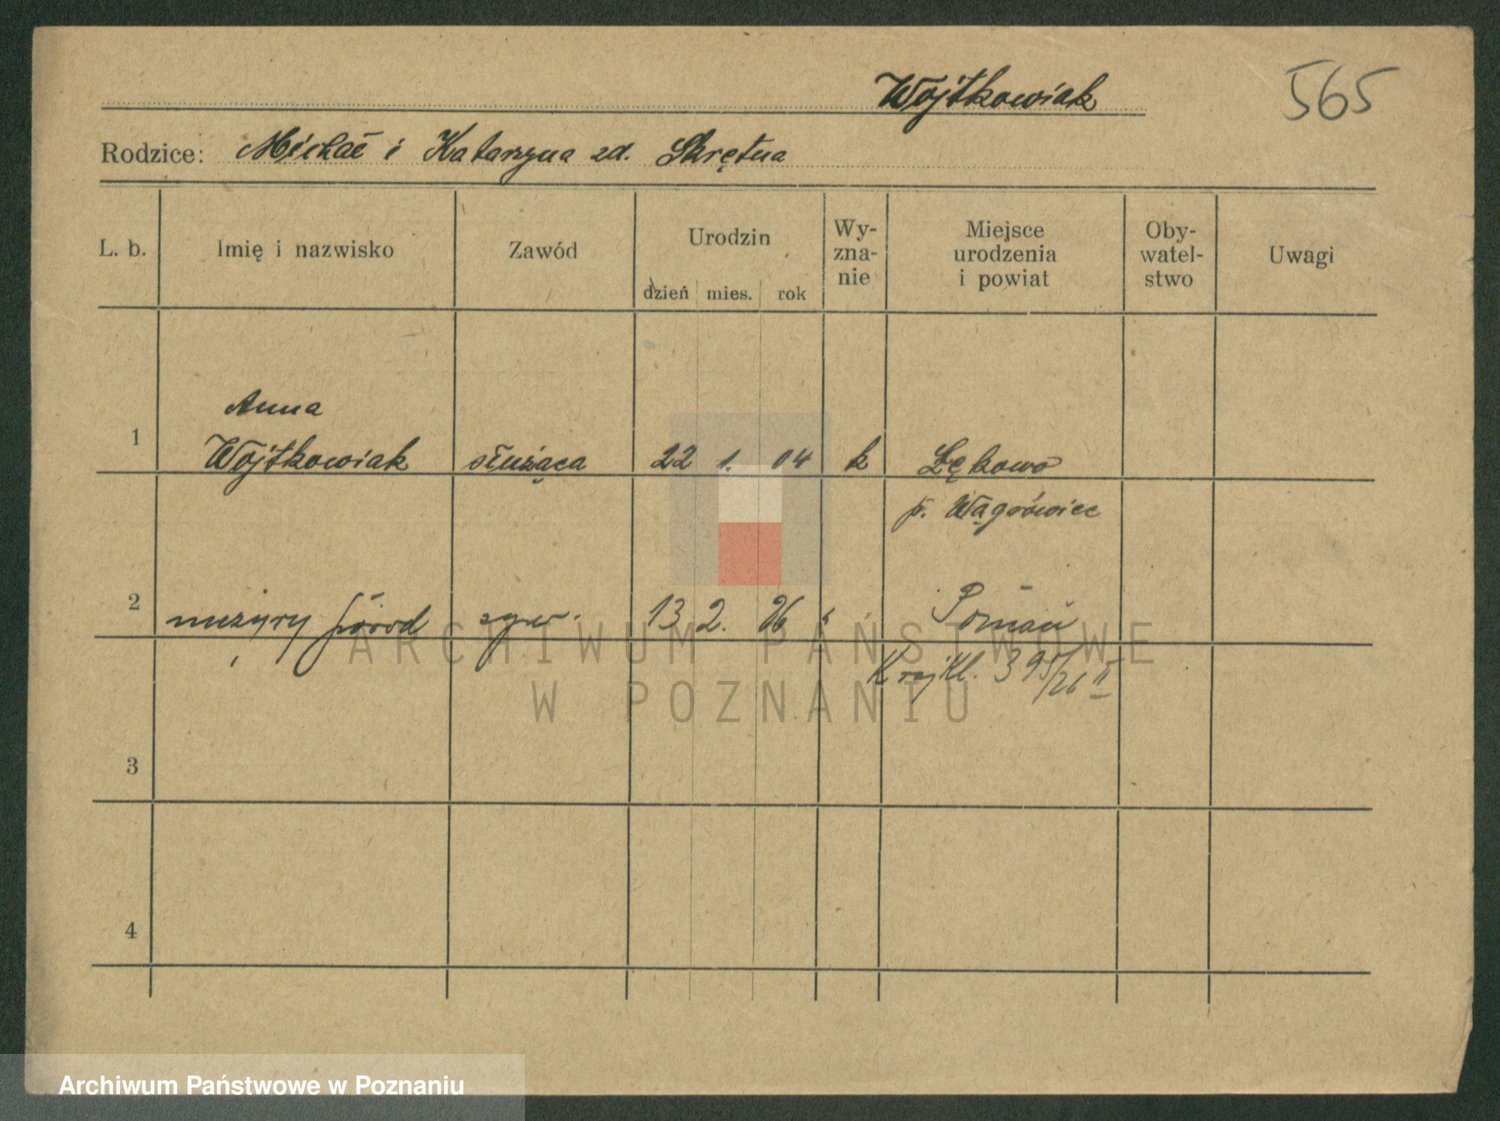 Wojtkowiak
565
Rodzice: Michał i Katarzyna zd. Skrętna
L. b.
Imię i nazwisko
Zawód
Urodzin
dzień mies. rok
Wy-
zna-
nie
Miejsce
urodzenia
i powiat
Oby-
watel-
stwo
Uwagi
Anna
1 Wojtkowiak służąca 22 1. 04 k Łękowo
p. Wągrówiec
2 nieżywy 13 2. 26
3
4
ARCHIWUM PAŃSTWOWE
W POZNANIU
Archiwum Państwowe w Poznaniu